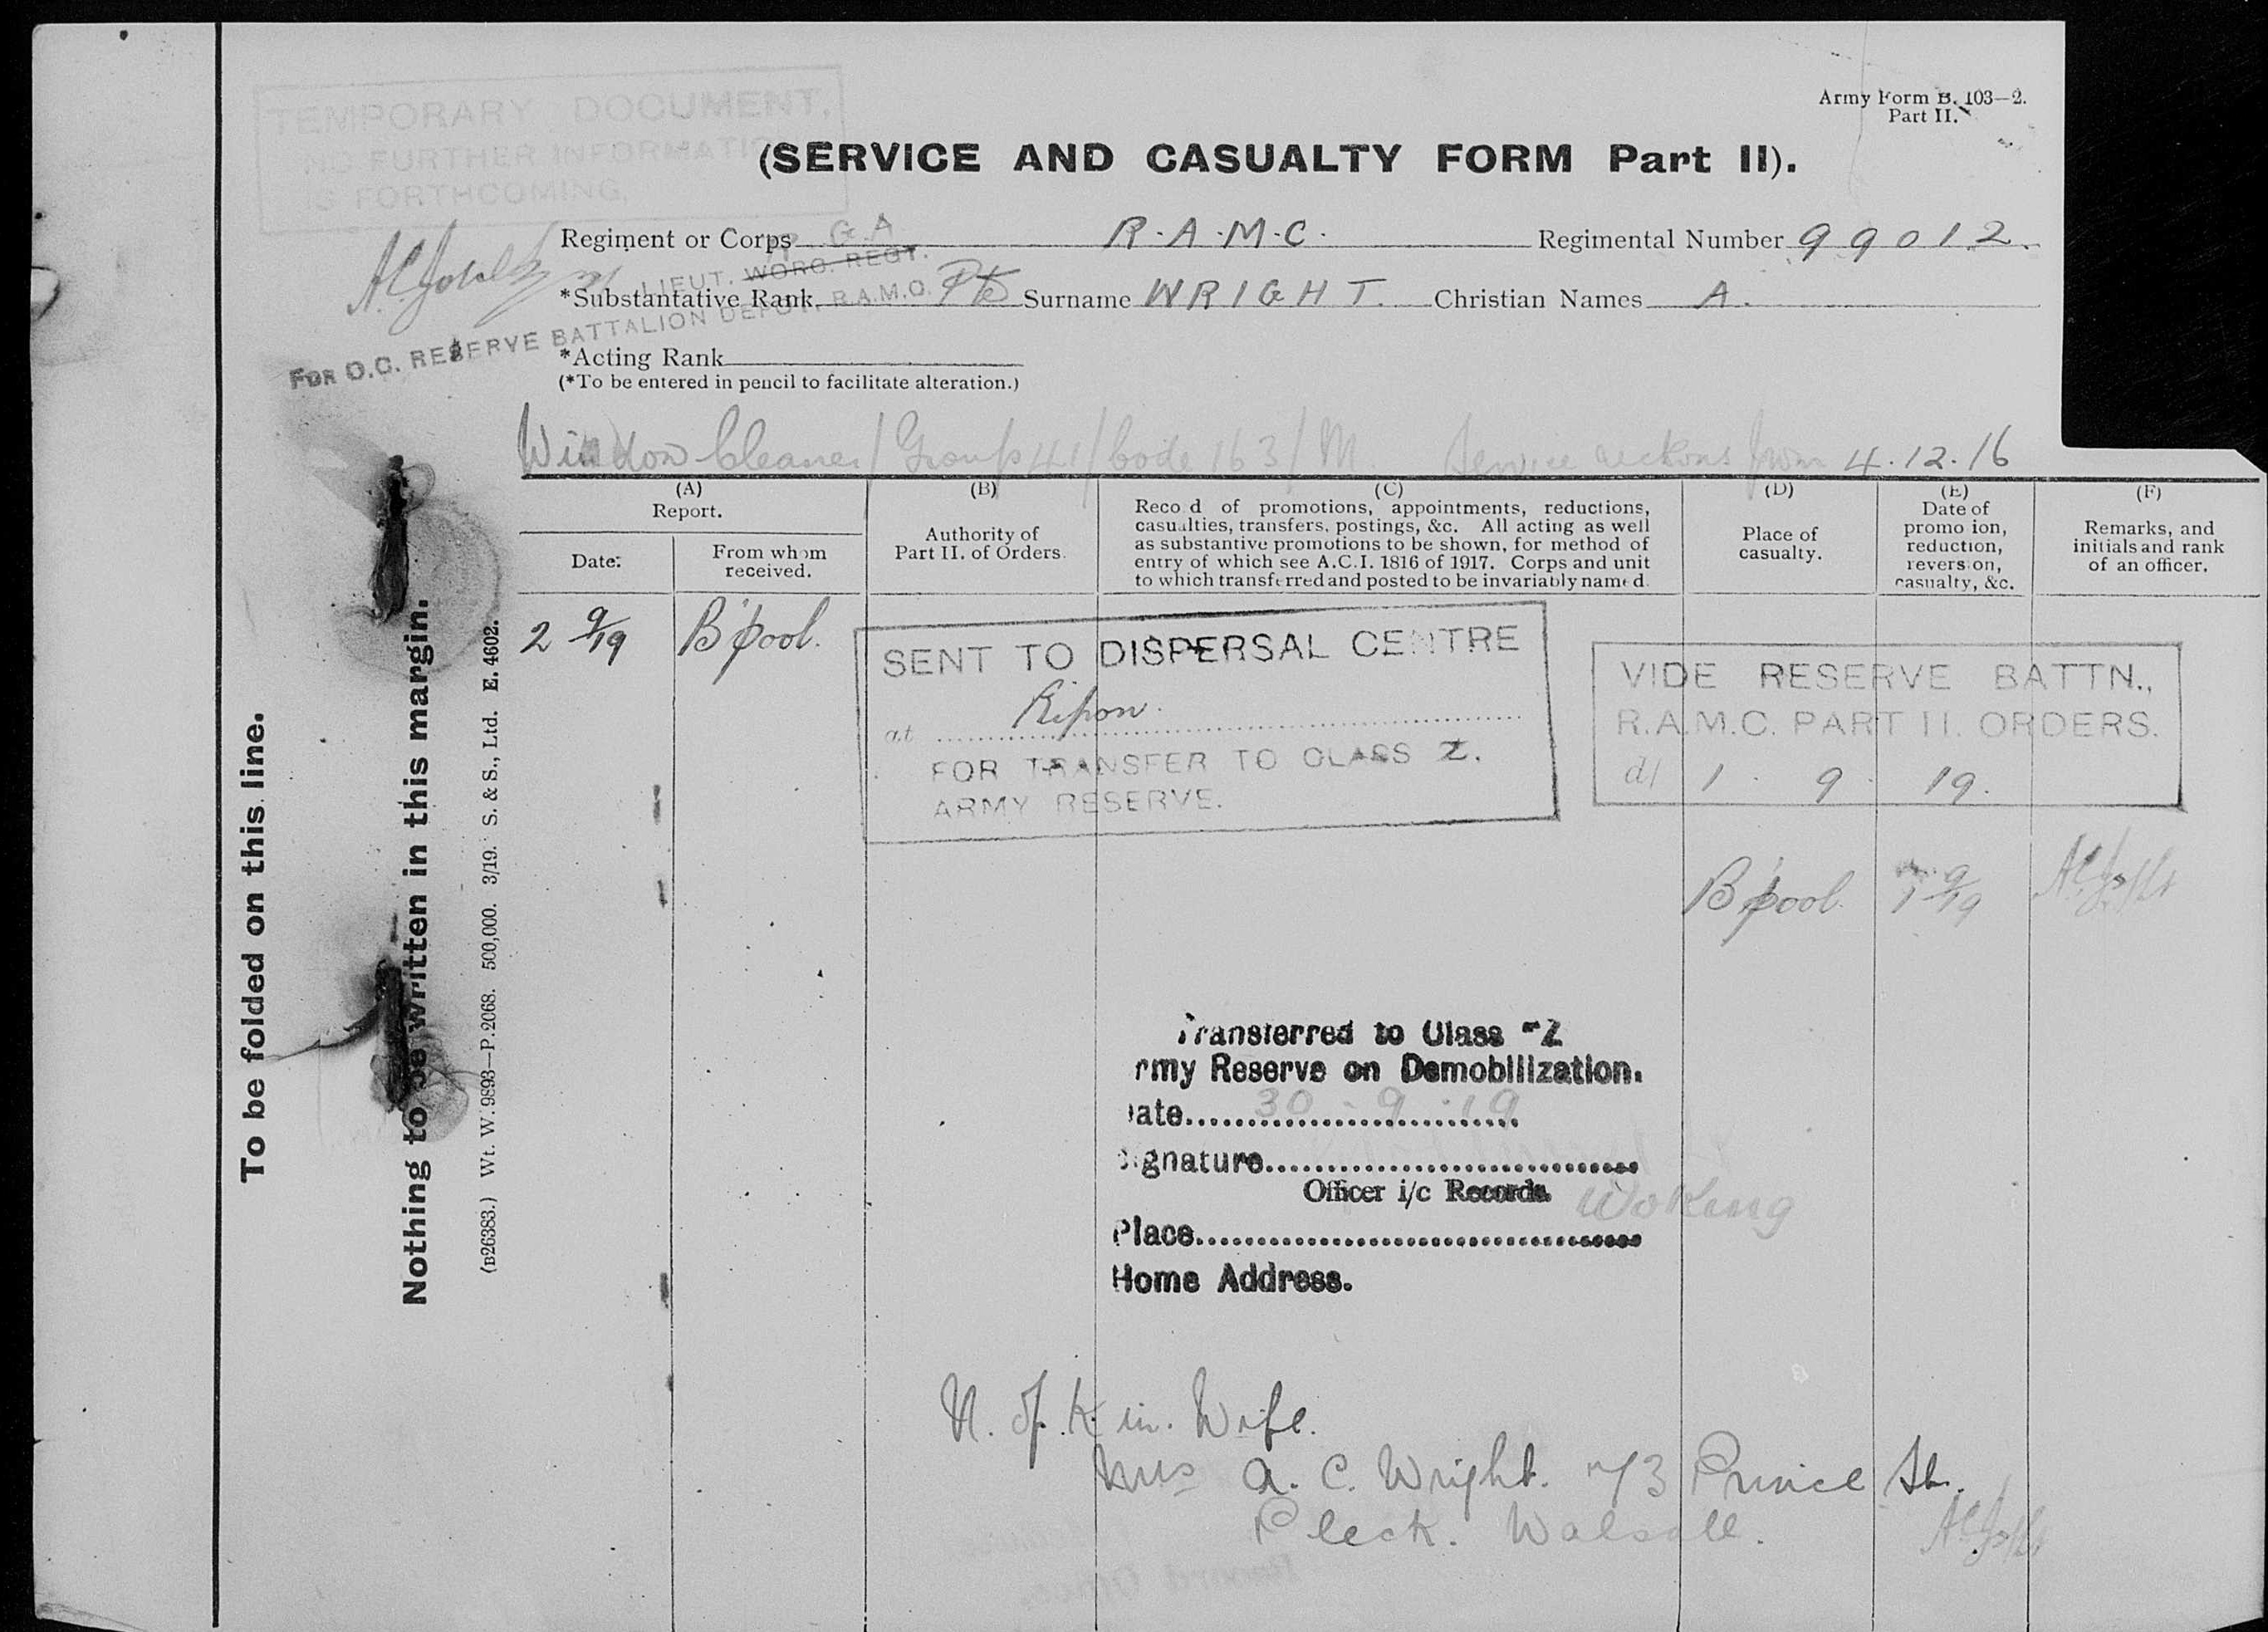 Army Form B. 103—2.
Part II.
TEMPORARY DOCUMENT,
NO FURTHER INFORMATION
IS FORTHCOMING,
(SERVICE AND CASUALTY FORM Part II).
Regiment or Corps R.A.M.C. Regimental Number 99012.
G.A
LIEUT. WORC. REGT.
*Substantative Rank Pte Surname WRIGHT. Christian Names A.
FOR O.C. RESERVE BATTALION DEPOT, R.A.M.C.
*Acting Rank
(*To be entered in pencil to facilitate alteration.)
Window Cleaner / Group 41 / Code 163 / M. Service reckons from 4.12.16
(A) (B) (C) (D) (E) (F)
Report.
Date:
From whom
received.
Authority of
Part II. of Orders.
Reco d of promotions, appointments, reductions,
casualties, transfers, postings, &c. All acting as well
as substantive promotions to be shown, for method of
entry of which see A.C.I. 1816 of 1917. Corps and unit
to which transferred and posted to be invariably named.
Place of
casualty.
Date of
promo ion,
reduction,
reversion,
casualty, &c.
Remarks, and
initials and rank
of an officer.
2 9/19 B'pool.
SENT TO DISPERSAL CENTRE
at Ripon.
FOR TRANSFER TO CLASS Z.
ARMY RESERVE.
VIDE RESERVE BATTN.,
R.A.M.C. PART II. ORDERS.
d/ 1 . 9 . 19.
B'pool. 1 9/19
Transferred to Class "Z
rmy Reserve on Demobilization.
ate 30 . 9 . 19
ignature
Officer i/c Records. Woking
Place
Home Address.
N. of. Kin. Wife.
Mrs A. C. Wright. 73 Prince St.
Pleck. Walsall.
To be folded on this line.
Nothing to be written in this margin.
(B26383.) Wt. W. 9893—P. 2068. 500,000. 3/19. S. & S., Ltd. E. 4602.